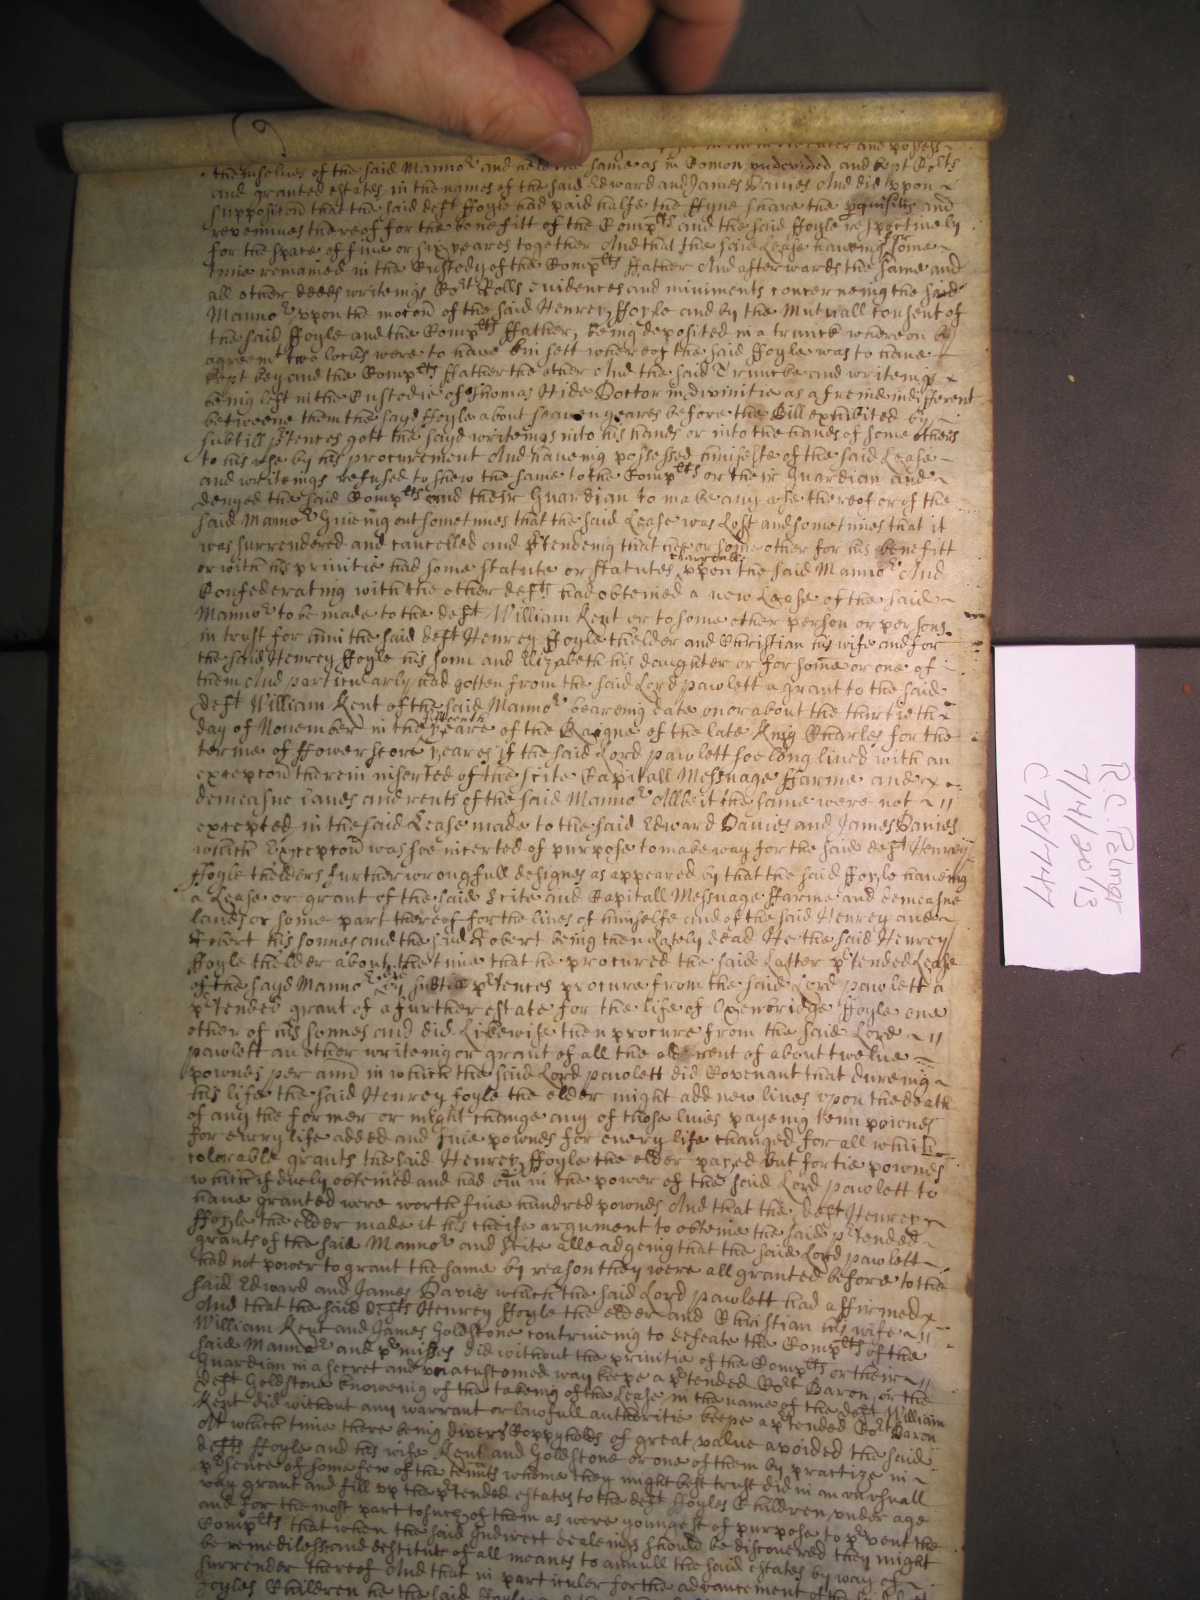 and possess
themselves of the said Manno^r and held the same as in Comon undevided and kept Co^rts
and granted estates in the names of the said Edward and James Davies And did upon
suppositon that the said deft ffoyle had paid halfe the ffyne share the p̱quisitts and
revennues thereof for the benefitt of the Comp^lts and the said ffoyle respectively
for the space of five or six yeares together And that the said Lease haveing some
time remained in the Custody of the Comp^lts ffather And afterwards the same and
all other deeds writeings Co^rt Rolls evidences and miniments concerneing the said
Manno^r upon the mocon of the said Henrey ffoyle and by the Mutuall consent of
the said ffoyle and the Comp^lts ffather, being deposited in a trunck whereon by
agreem^t two locks were to have bin sett whereof the said ffoyle was to have
kept key and the Comp^lts ffather the other And the said Truncke and writeings
being left in the Custodie of Thomas Hide Doctor in divinitie as a freind indifferent
betweene them the sayd ffoyle about seaven yeares before the Bill exhibited by
subtill p^rtences gott the sayd writeings into his hands or into the hands of some others
to his use by his procurement And haveing possessed himselfe of the said Lease
and writeings refused to shew the same to the Comp^lts or their Guardian and
denyed the said Comp^lts and their Guardian to make any use thereof or of the
said Manno^r Giveing out sometimes that the said Lease was Lost and sometimes that it
was surrendered and cancelled and p^rtending that hee or some other for his benefitt
or with his privitie had some statute or statutes chargeable upon the said Manno^r And
Confederating with the other def^ts had obteined a new Lease of the said
Manno^r to be made to the deft William Kent or to some other person or persons
in trust for him the said deft Henrey ffoyle thelder and Christian his wife and for
the said Henrey ffoyle his sonn and Elizabeth his daughter or for some or one of
them And particularly had gotten from the said Lord pawlett a grant to the said
deft William Kent of the said Manno^r beareing date on or about the thirtieth
day of November in the fifteenth yeare of the Raigne of the late King Charles for the
terme of ffowerscore yeares if the said Lord pawlett soe long lived with an
excepcon therein inserted of the scite Capitall Messuage ffarme and
demeasne Lands and rents of the said Manno^r Allbeit the same were not
excepted in the said Lease made to the said Edward Davies and James Davies
which Excepcon was soe incerted of purpose to make way for the said deft Henrey
ffoyle thelders further wrongfull designes as appeared by that the said ffoyle haveing
a Lease or grant of the said Scite and Capitall Messuage ffarme and demeasne
lands or some part thereof for the lives of himselfe and of the said Henrey and
Robert his sonnes and the said Robert being then Lately dead He the said Henrey
ffoyle thelder about the time that he procured the said Latter p^rtended Lease
of the sayd Manno^r did by subtill p^rtences procure from the said Lord pawlett a
p^rtended grant of a further estate for the life of Oxenbridge ffoyle one
other of his sonnes and did Likewise then procure from the said Lord
pawlett an other writeing or grant of all the old rent of about twelve
pownes per ann in which the said Lord pawlett did Covenant that dureing
his life the said Henrey foyle the elder might add new lives upon the death
of any the former or might change any of those lives payeing tenn powndes
for every life added and five pownds for every life changed for all which
colorable grants the said Henrey ffoyle the elder payed but fortie pownds
which if duely obteined and had bin in the power of the said Lord pawlett to
have granted were worth five hundred pownds And that the deft Henrey
ffoyle the elder made it his cheife argument to obteine the said p^rtended
grants of the said Manno^r and Scite alleadgeing that the said Lord pawlett
had not power to grant the same by reason they were all granted before to the
said Edward and James Davies which the said Lord pawlett had affirmed
And that the said defts Henrey ffoyle the elder and Christian his wife
William Kent and James Goldstone contriveing to defeate the Comp^lts of the
said Manno^r and p^rmisses did without the privitie of the Comp^lts or their
Guardian in a secret and unacustomed way keepe a p^rtended Co^rt Baron or the
deft Goldstone knoweing of the takeing of the Lease in the name of the deft William
Kent did without any warrant or lawfull authoritie keepe a p^rtended Co^rt Baron
At which time there being divers Coppyholds of great value avoided the said
defts ffoyle and his wife Kent and Goldstone or one of them by practize in
p^rsence of some few of the ten^nts whome they might best trust did in an unusuall
way grant and fill up the p^rtended estates to the deft ffoyles Children under age
and for the most part to such of them as were youngest of purpose to p^rvent the
Comp^lts that when the said Indirect dealeings should be discovered they might
be remediless and destitute of all meanes to annull the said estates by way of
surrender thereof And that in particuler for the advancement of
ffoyles Children he the said
R.C. Palmer
7/4/2013
C78/747